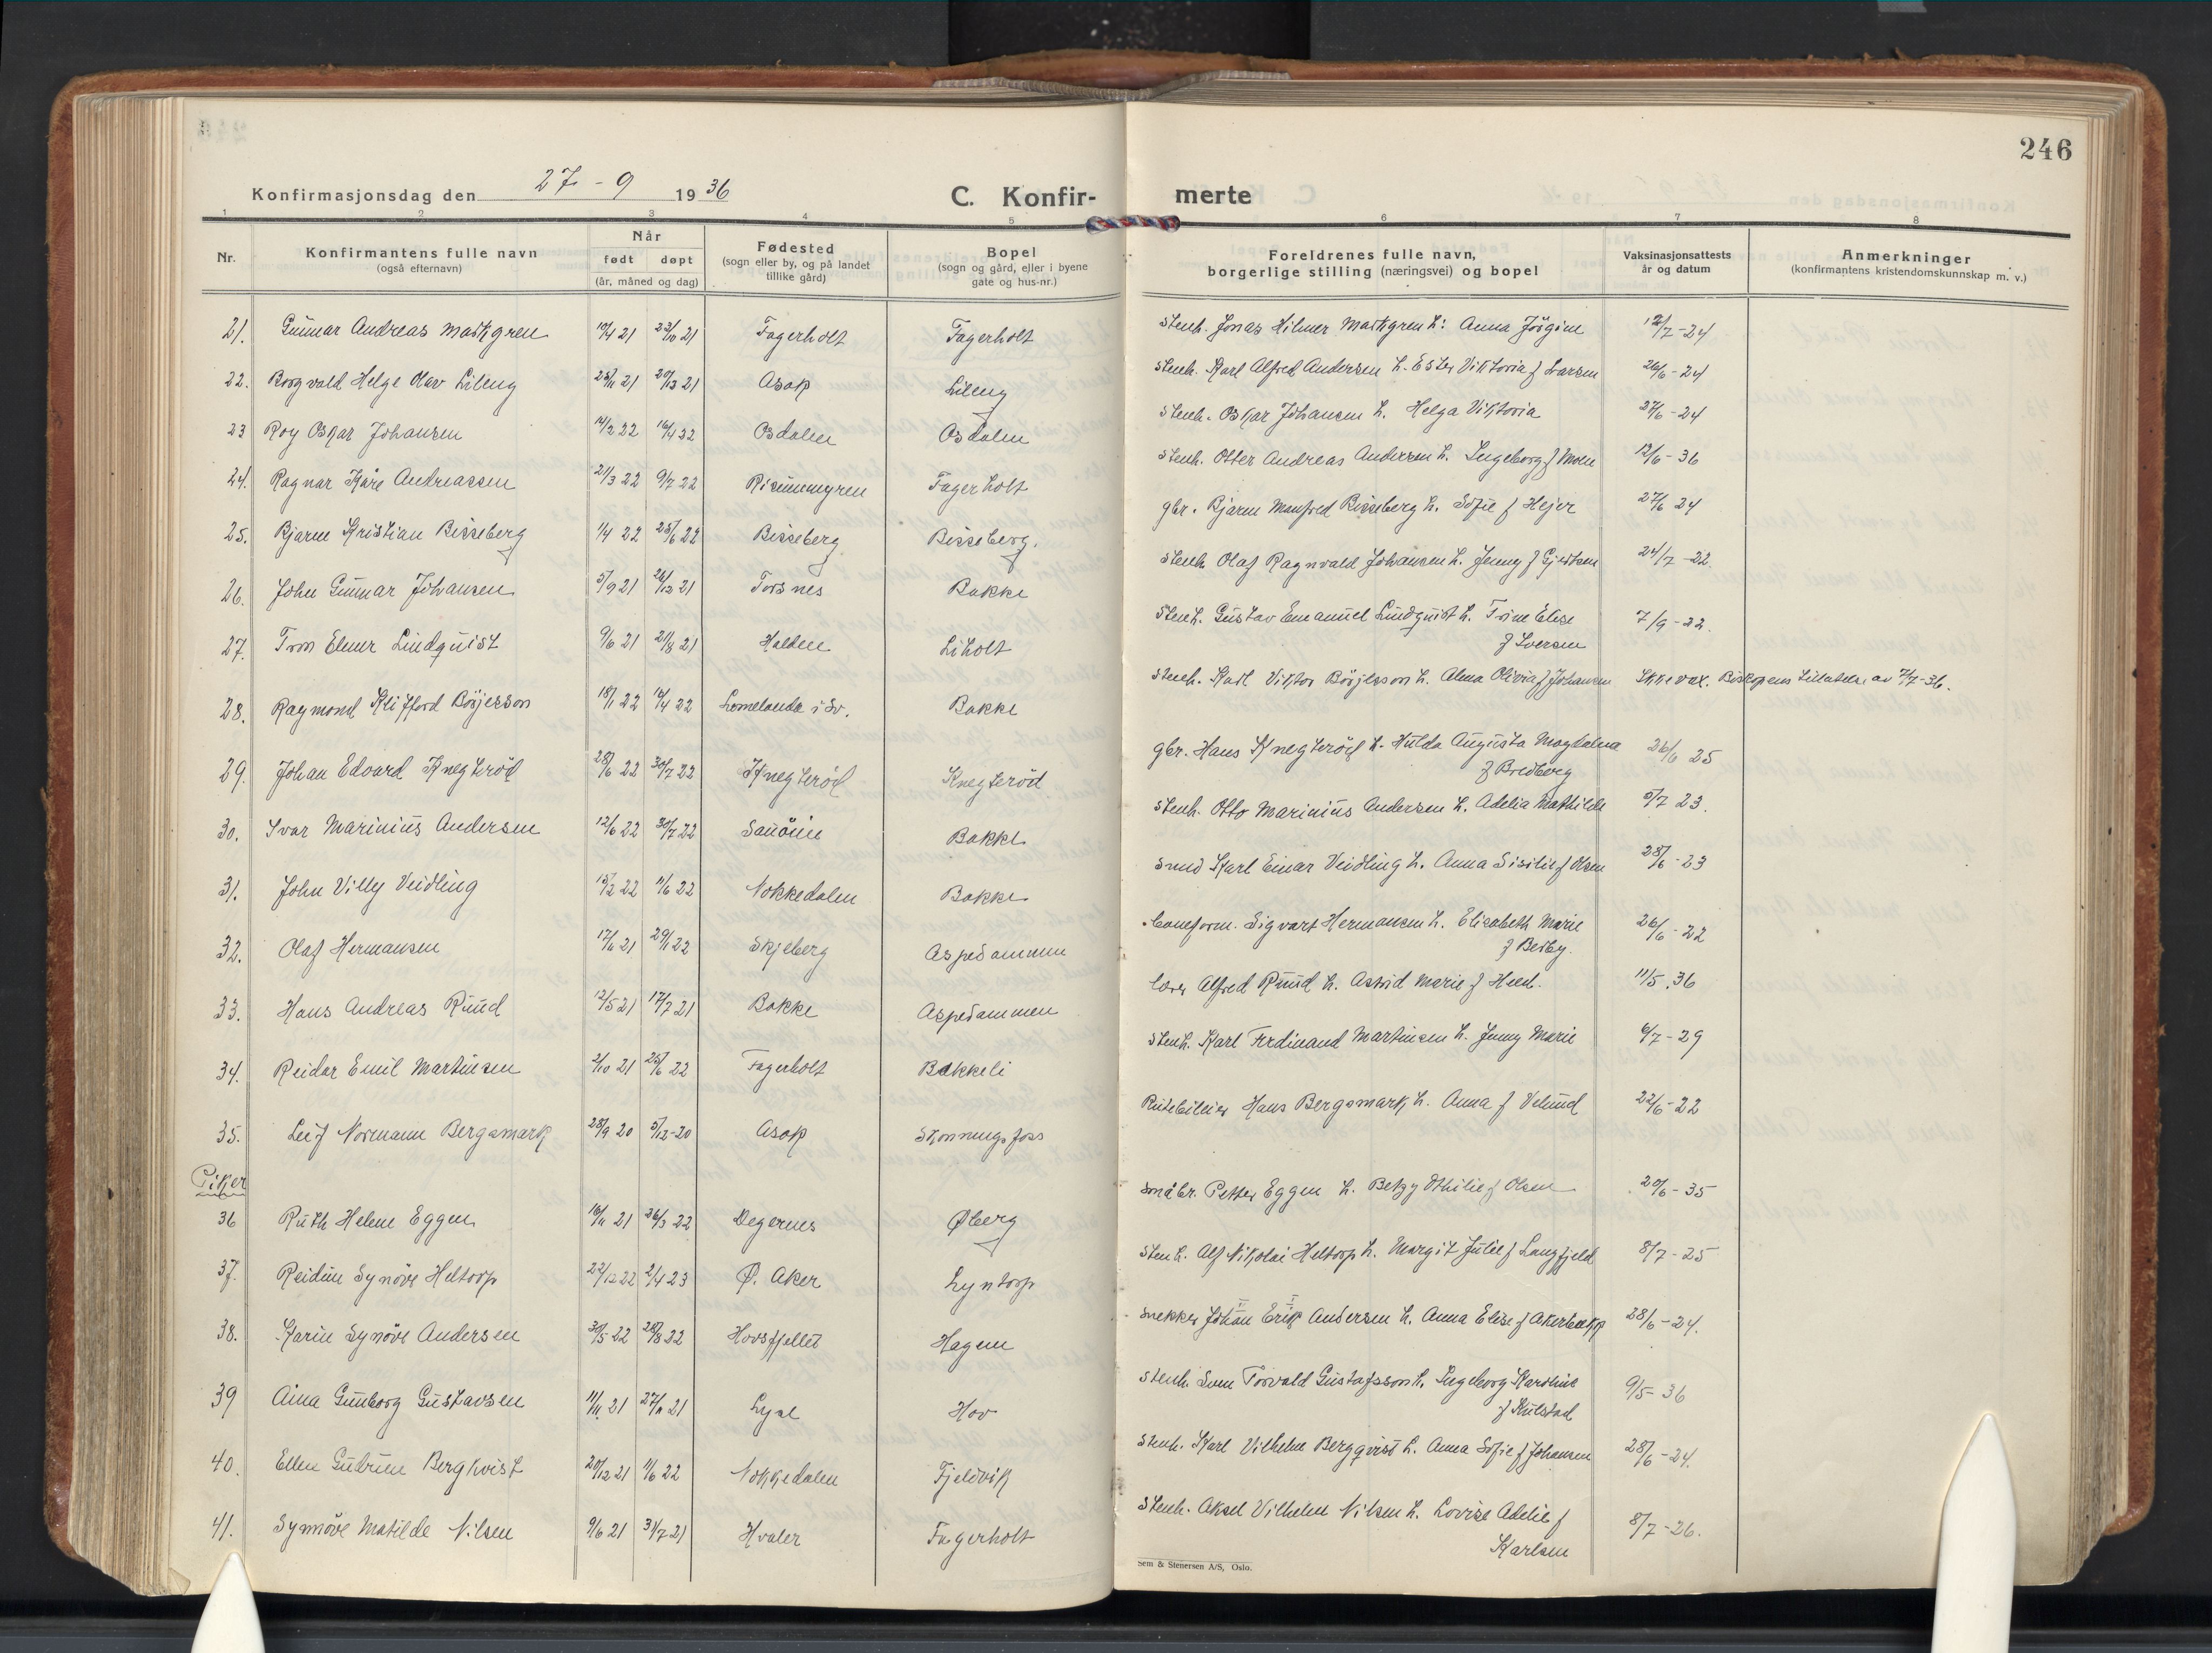 246
Konfirmasjonsdag den 27 - 9 1936
C. Konfir-
merte
1 2 3 4 5 6 7 8
Nr.
Konfirmantens fulle navn
(også efternavn)
Når
født døpt
(år, måned og dag)
Fødested
(sogn eller by, og på landet
tillike gård)
Bopel
(sogn og gård, eller i byene
gate og hus-nr.)
Foreldrenes fulle navn,
borgerlige stilling (næringsvei) og bopel
Vaksinasjonsattests
år og datum
Anmerkninger
(konfirmantens kristendomskunnskap m. v.)
21. Gunnar Andreas Markgren 10/4 21 23/10 21 Fagerholt Fagerholt Stenh. Jonas Hilmer Markgren h: Anna Jörgine 12/7-24
22. Borgvald Helge Olav Lileng 25/11 21 20/12 21 Asak Lileng Stenh. Karl Alfred Andersen h. Ester Viktoria f Larsen 26/6-24
23 Roy Oskar Johansen 14/2 22 16/4 22 Osdalen Osdalen Stenh. Oskar Johansen h. Helga Viktoria 27/6-24
24. Ragnar Kåre Andreassen 21/3 22 9/7 22 Risummyren Fagerholt Stenh. Otter Andreas Andersen h. Ingeborg f Moen 12/6-36
25. Bjarne Kristian Bisseberg 1/4 22 25/6 22 Bisseberg Bisseberg. gbr. Bjarne Manfred Bisseberg h. Sofie f Hejer 27/6 24
26. John Gunnar Johansen 5/9 21 26/12 21 Torsnes Bakke Stenh. Olaf Ragnvald Johansen h. Jenny f Gjertsen 24/7-22.
27. Tron Elmer Lindquist 9/6 21 21/8 21 Halden Liholt Stenh. Gustav Emanuel Lindquist h. Trine Elise
f Iversen 7/9-22.
28. Raymond Klifford Börjesson 18/1 22 14/4 22 Lomelanda i Sv. Bakke Stenh. Karl Viktor Börjesson h. Alma Olivia f Johansen Ikke vax. Biskopens tillatelse av 7/7-36.
29. Johan Edvard Knegteröd 28/6 22 30/7 22 Knegteröd Knegteröd gbr. Hans Knegteröd h. Hulda Augusta Magdalena
f Bredberg 26/6 25
30. Ivar Marinius Andersen 12/6 22 30/7 22 Bakke Stenh. Otto Marinius Andersen h. Adelia Mathilde 5/7 23.
31. John Villy Veidling 15/2 22 11/6 22 Nokkedalen Bakke Smed Karl Einar Veidling h. Anna Sisilie f Olsen 28/6-23
32. Olaf Hermansen 17/6 21 29/1 22 Skjeberg Aspedammen Baneform. Sigvart Hermansen h. Elisabeth Marie
f Berby. 26/6-22
33. Hans Andreas Ruud 12/5 21 17/7 21 Bakke Aspedammen lærer Alfred Ruud h. Astrid Marie f Heen. 11/5.36
34. Reidar Emil Martinsen 2/10 21 25/6 22 Fagerholt Bakkeli Stenh. Karl Ferdinand Martinsen h. Jenny Marie 6/7-29
35. Leif Normann Bergsmark 28/9 20 5/12-20 Asak Skonningsfoss Rutebileier Hans Bergsmark h. Anna f Velund 22/6-22
Piker
36 Ruth Helene Eggen 16/11 21 26/3 22 Degernes Øberg småbr. Petter Eggen h. Betzy Othilie f Olsen 20/6-35
37. Reidun Synöve Heltorp 22/12 22 2/4 23 Ø. Aker Lyntorp Stenh. Alf Nikolai Heltorp h. Margit Julie f Langfjeld 8/7-25
38. Karin Synöve Andersen 30/5 22 20/8 22 Hovsfjellet Hagen Snekker Johan Erik Andersen h. Anna Elise f Akerbekk 28/6-24.
39 Aina Gunborg Gustavsen 11/11 21 27/11 21 Lyse Hov Stenh. Sven Torvald Gustafsson h. Ingeborg Karoline
f Kulstad 9/5-36
40. Ellen Gudrun Bergkvist 20/12 21 11/6 22 Nokkedalen Fjeldvik Stenh. Karl Vilhelm Bergqvist h. Anna Sofie f Johansen 28/6-24.
41. Synnöve Matilde Nilsen 9/6 21 31/7 21 Hvaler Fagerholt Stenh. Aksel Vilhelm Nilsen h. Lovise Adelie f
Karlsen 8/7-26.
Sem & Stenersen A/S, Oslo.